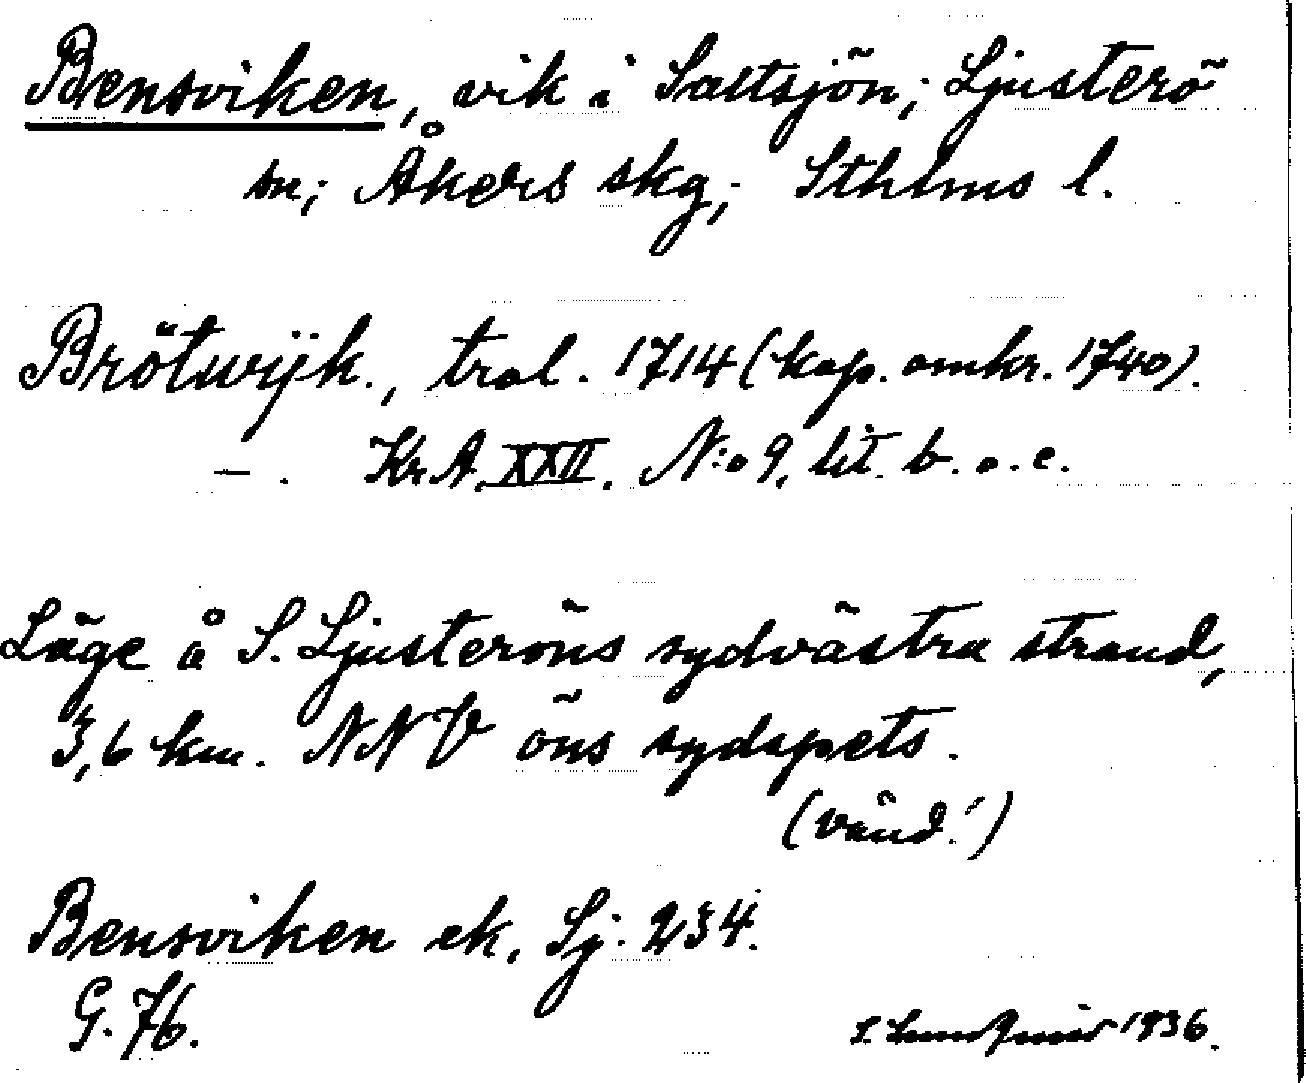 Bensviken, vik i Saltsjön; Ljusterö
sn; Åkers skg; Sthlms l.
Brötwijk., tral. 1714 (kop. omkr. 1740).
—. Kr.A. XXII. N:o 9, lit. b. o. c.
Läge å S. Ljusteröns sydvästra strand,
3,6 km. NNV öns sydspets.
(vänd!)
Bensviken ek, Sj. 234.
G. 76.
1936.